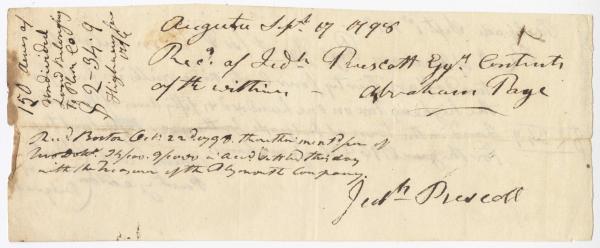 Augusta Sept. 17 1798
Recd. of Jedh. Prescott Esqr. Contents
of the within —
Abraham Page
Recd. Boston Oct. 22d 1798. the within sum of
in acct. settled this day
with the Treasurer of the Plymouth Company.
Jedh. Prescott
150 Acres of
undivided
Land belonging
to Plym. Co.
$2-34.9
Highway
1796